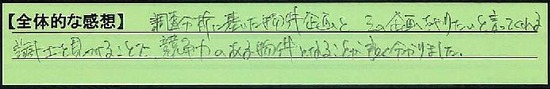 【全体的な感想】 調査分析に基いた物件企画と、この企画をやりたいと言ってくれる
講士を見つけることで、競争力のある物件になることが良く分かりました。